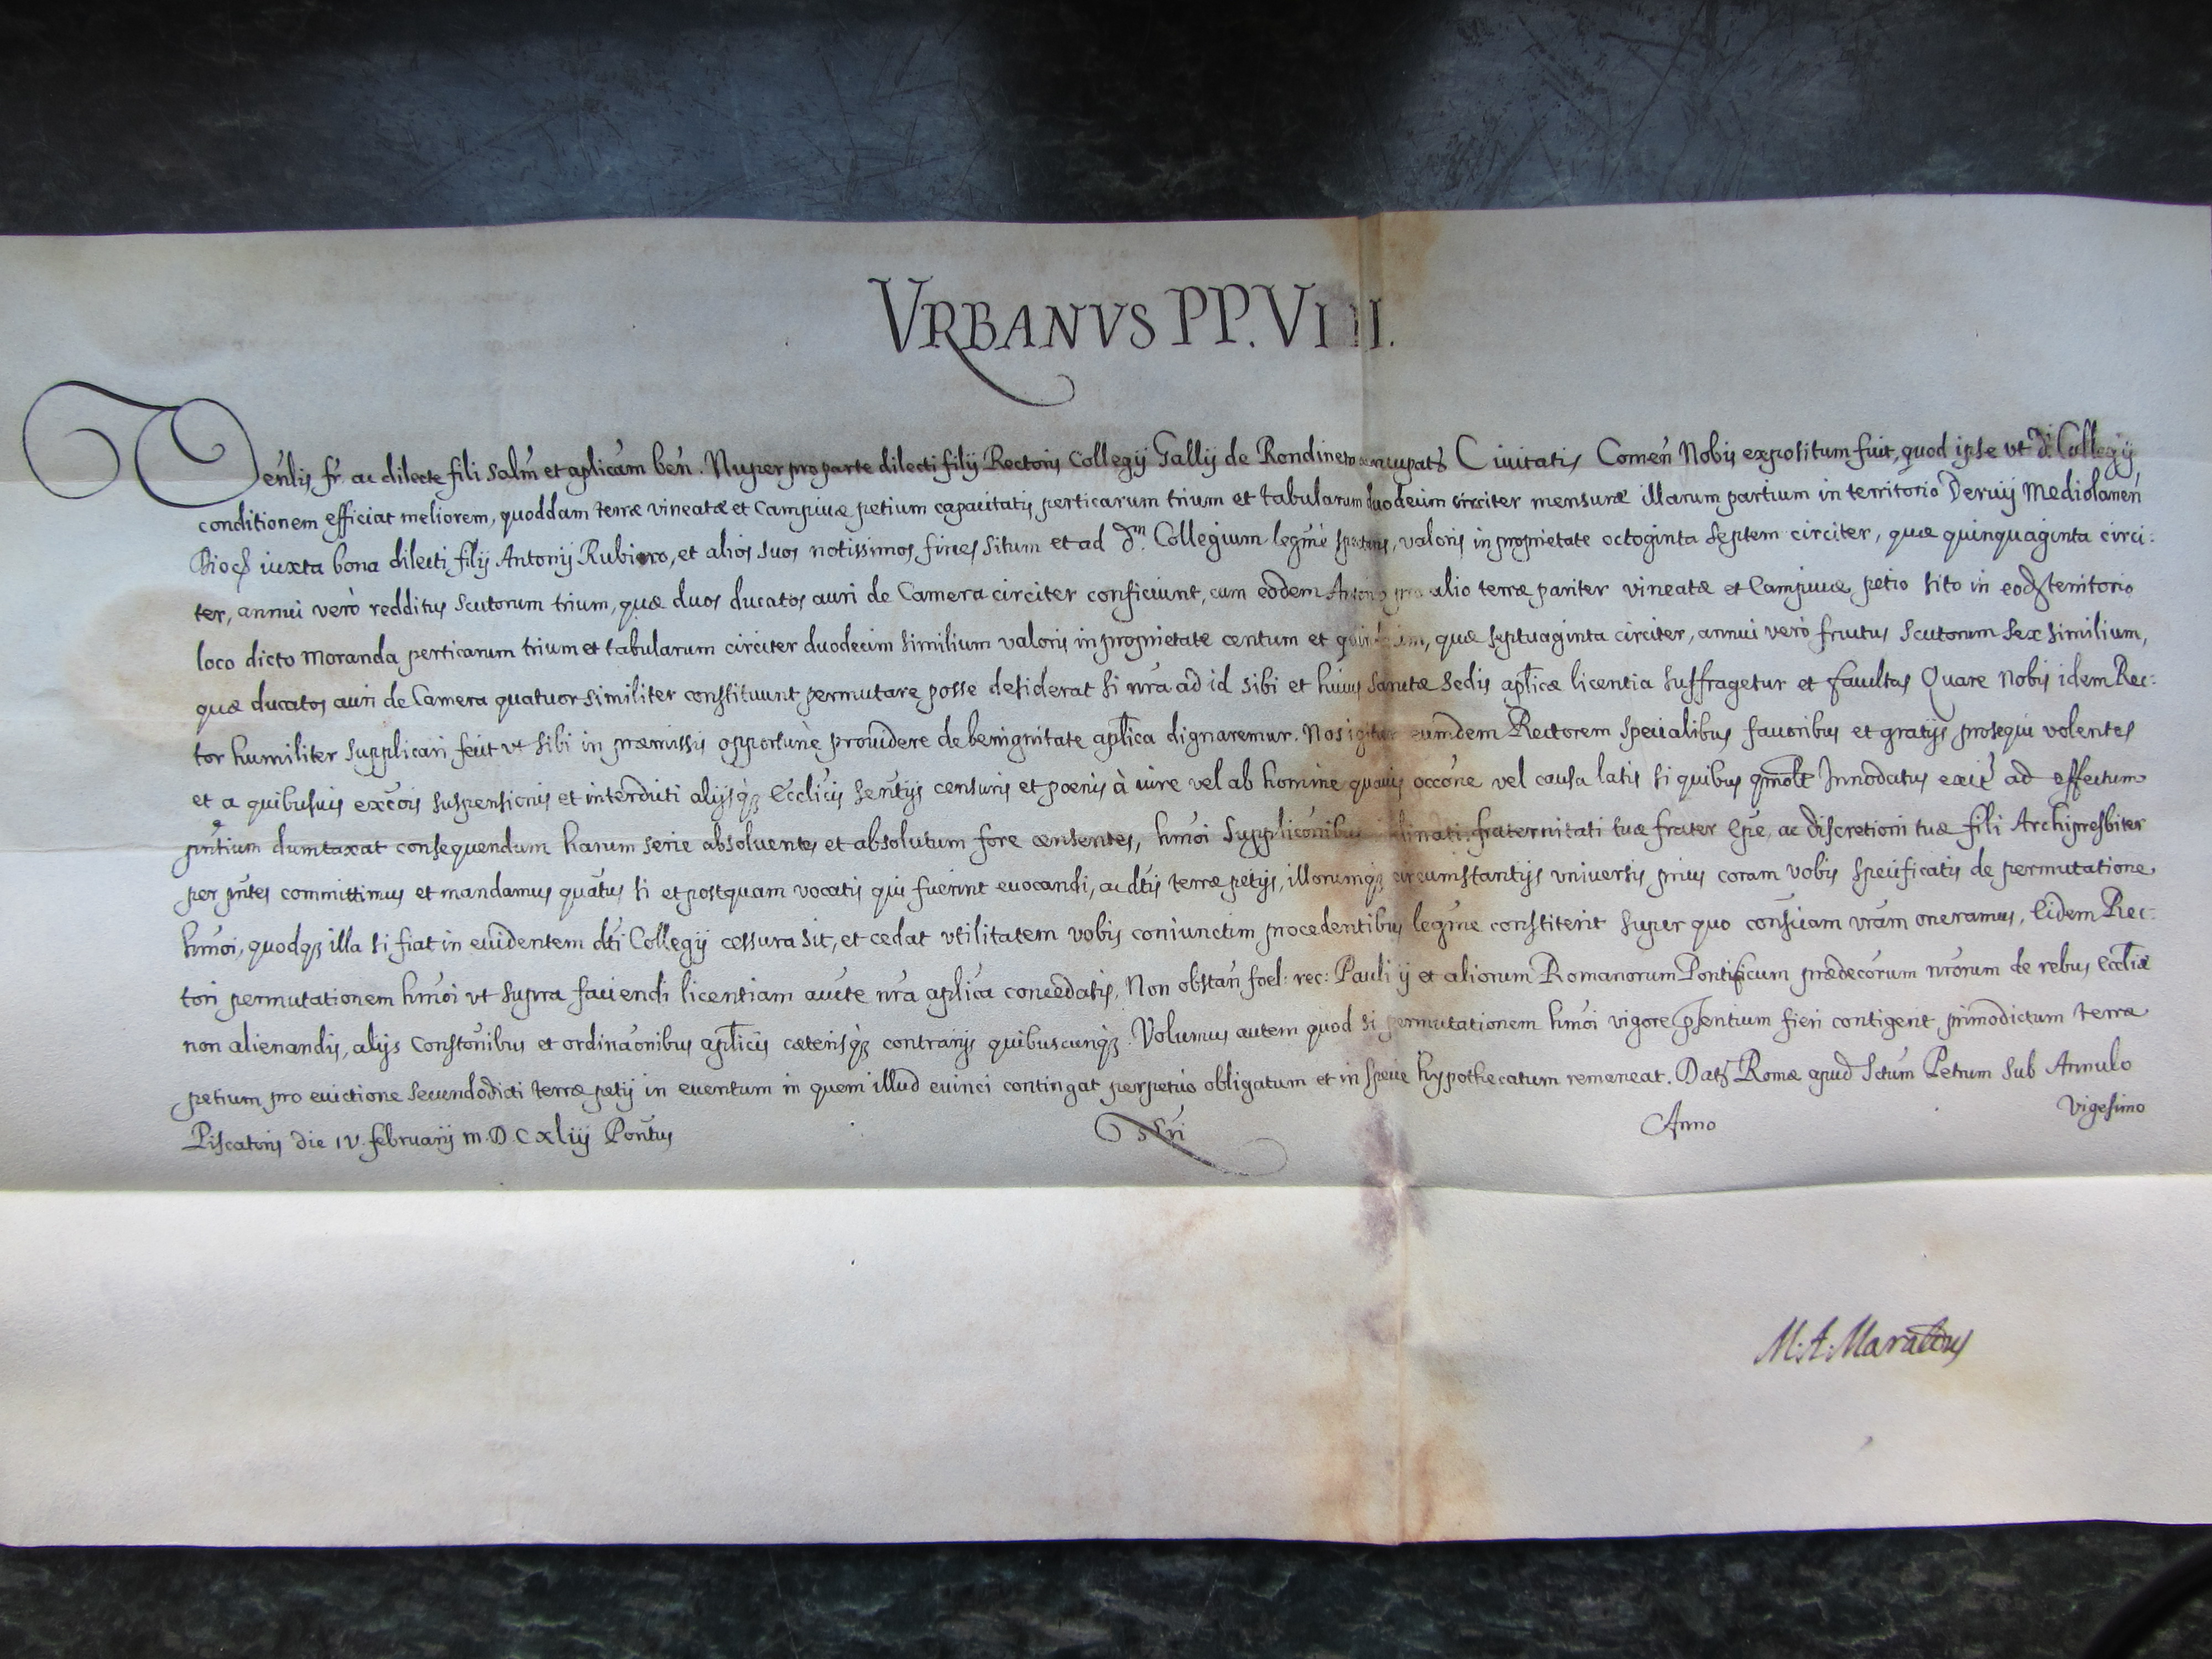 VRBANVS PP. VIII.
Venlis fr. ac dilecte fili salm̃ et aplicam ben. Nuper pro parte dilecti filij Rectoris Collegij Gallij de Rondineto Ciuitatis Comen̄ Nobis expositum fuit, quod ipse vt dī Collegij
conditionem efficiat meliorem, quoddam terræ vineatæ et Campiuæ petium capacitatis perticarum trium et tabularum duodecim circiter mensuræ illarum partium in territorio Deruij Mediolanen̄
Dioc̄ iuxta bona dilecti filij Antonij et alios suos notissimos fines situm et ad dm̄ Collegium legm̄e valoris in proprietate octoginta septem circiter, quæ quinquaginta circi:
ter, annui verò redditus scutorum trium, quæ duos ducatos auri de Camera circiter conficiunt, cum eodem Antonio pro alio terræ pariter vineatæ et Campiuæ petio sito in eodȝ territorio
loco dicto Moranda perticarum trium et tabularum circiter duodecim similium valoris in proprietate centum et quæ septuaginta circiter, annui verò fructus scutorum sex similium,
quæ ducatos auri de Camera quatuor similiter constituunt permutare posse desiderat si nr̄a ad id sibi et huius sanctæ sedis aplicæ licentia suffragetur et facultas Quare Nobis idem Rec:
tor humiliter supplicari fecit vt sibi in præmissis opportunè prouidere de benignitate aplica dignaremur. Nos igitur eumdem Rectorem specialibus fauoribus et gratijs prosequi volentes
et a quibusuis exc̄ois suspensionis et interdicti alijsqȝ Ecclicis senr̄ijs censuris et poenis à iure vel ab homine quauis occōne vel causa latis si quibus qmolt Innodatus exit̄ ad effectum
pn̄tium dumtaxat consequendum harum serie absoluentes et absolutum fore censentes, hmōi supplicōnibus inclinati fraternitati tuæ frater Epe, ac discretioni tuæ fili Archipresbiter
per pn̄tes committimus et mandamus quātus si et postquam vocatis qui fuerint euocandi, ac dtis terræ petijs, illorumqȝ circumstantijs vniuersis prius coram vobis specificatis de permutatione
hmōi, quodqȝ illa si fiat in euidentem dti Collegij cessura sit, et cedat vtilitatem vobis coniunctim procedentibus legm̄e constiterit super quo consciam vr̄am oneramus, Eidem Rec:
tori permutationem hmōi vt supra faciendi licentiam aucte nr̄a aplica concedatis. Non obstan̄ foel: rec: Pauli ij et aliorum Romanorum Pontificum prædecorum nr̄orum de rebus Eccliæ
non alienandis, alijs constōnibus et ordinaōnibus aplicis cæterisqȝ contrarijs quibuscunqȝ. Volumus autem quod si permutationem hmōi vigore pn̄sentium fieri contigerit primodictum terræ
petium pro euictione secundodicti terræ petij in euentum in quem illud euinci contingat perpetuò obligatum et in specie hypothecatum remaneat. Datȝ Romæ apud Sctum Petrum sub Annulo
Piscatoris die IV. februarij M.D.C.xliij Pontus nr̄i Anno Vigesimo
M. A. Maraldus